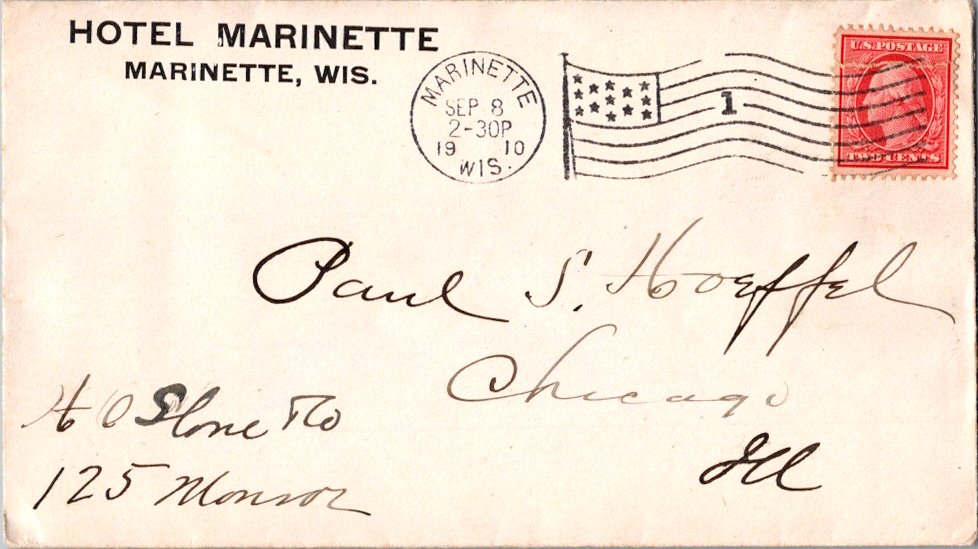 HOTEL MARINETTE
MARINETTE, WIS.
MARINETTE
SEP 8
2-30P
19 10
WIS.
1
U.S. POSTAGE
TWO CENTS
Paul S. Hoeffel
Chicago
Ill
H O Stone Co
125 Monroe